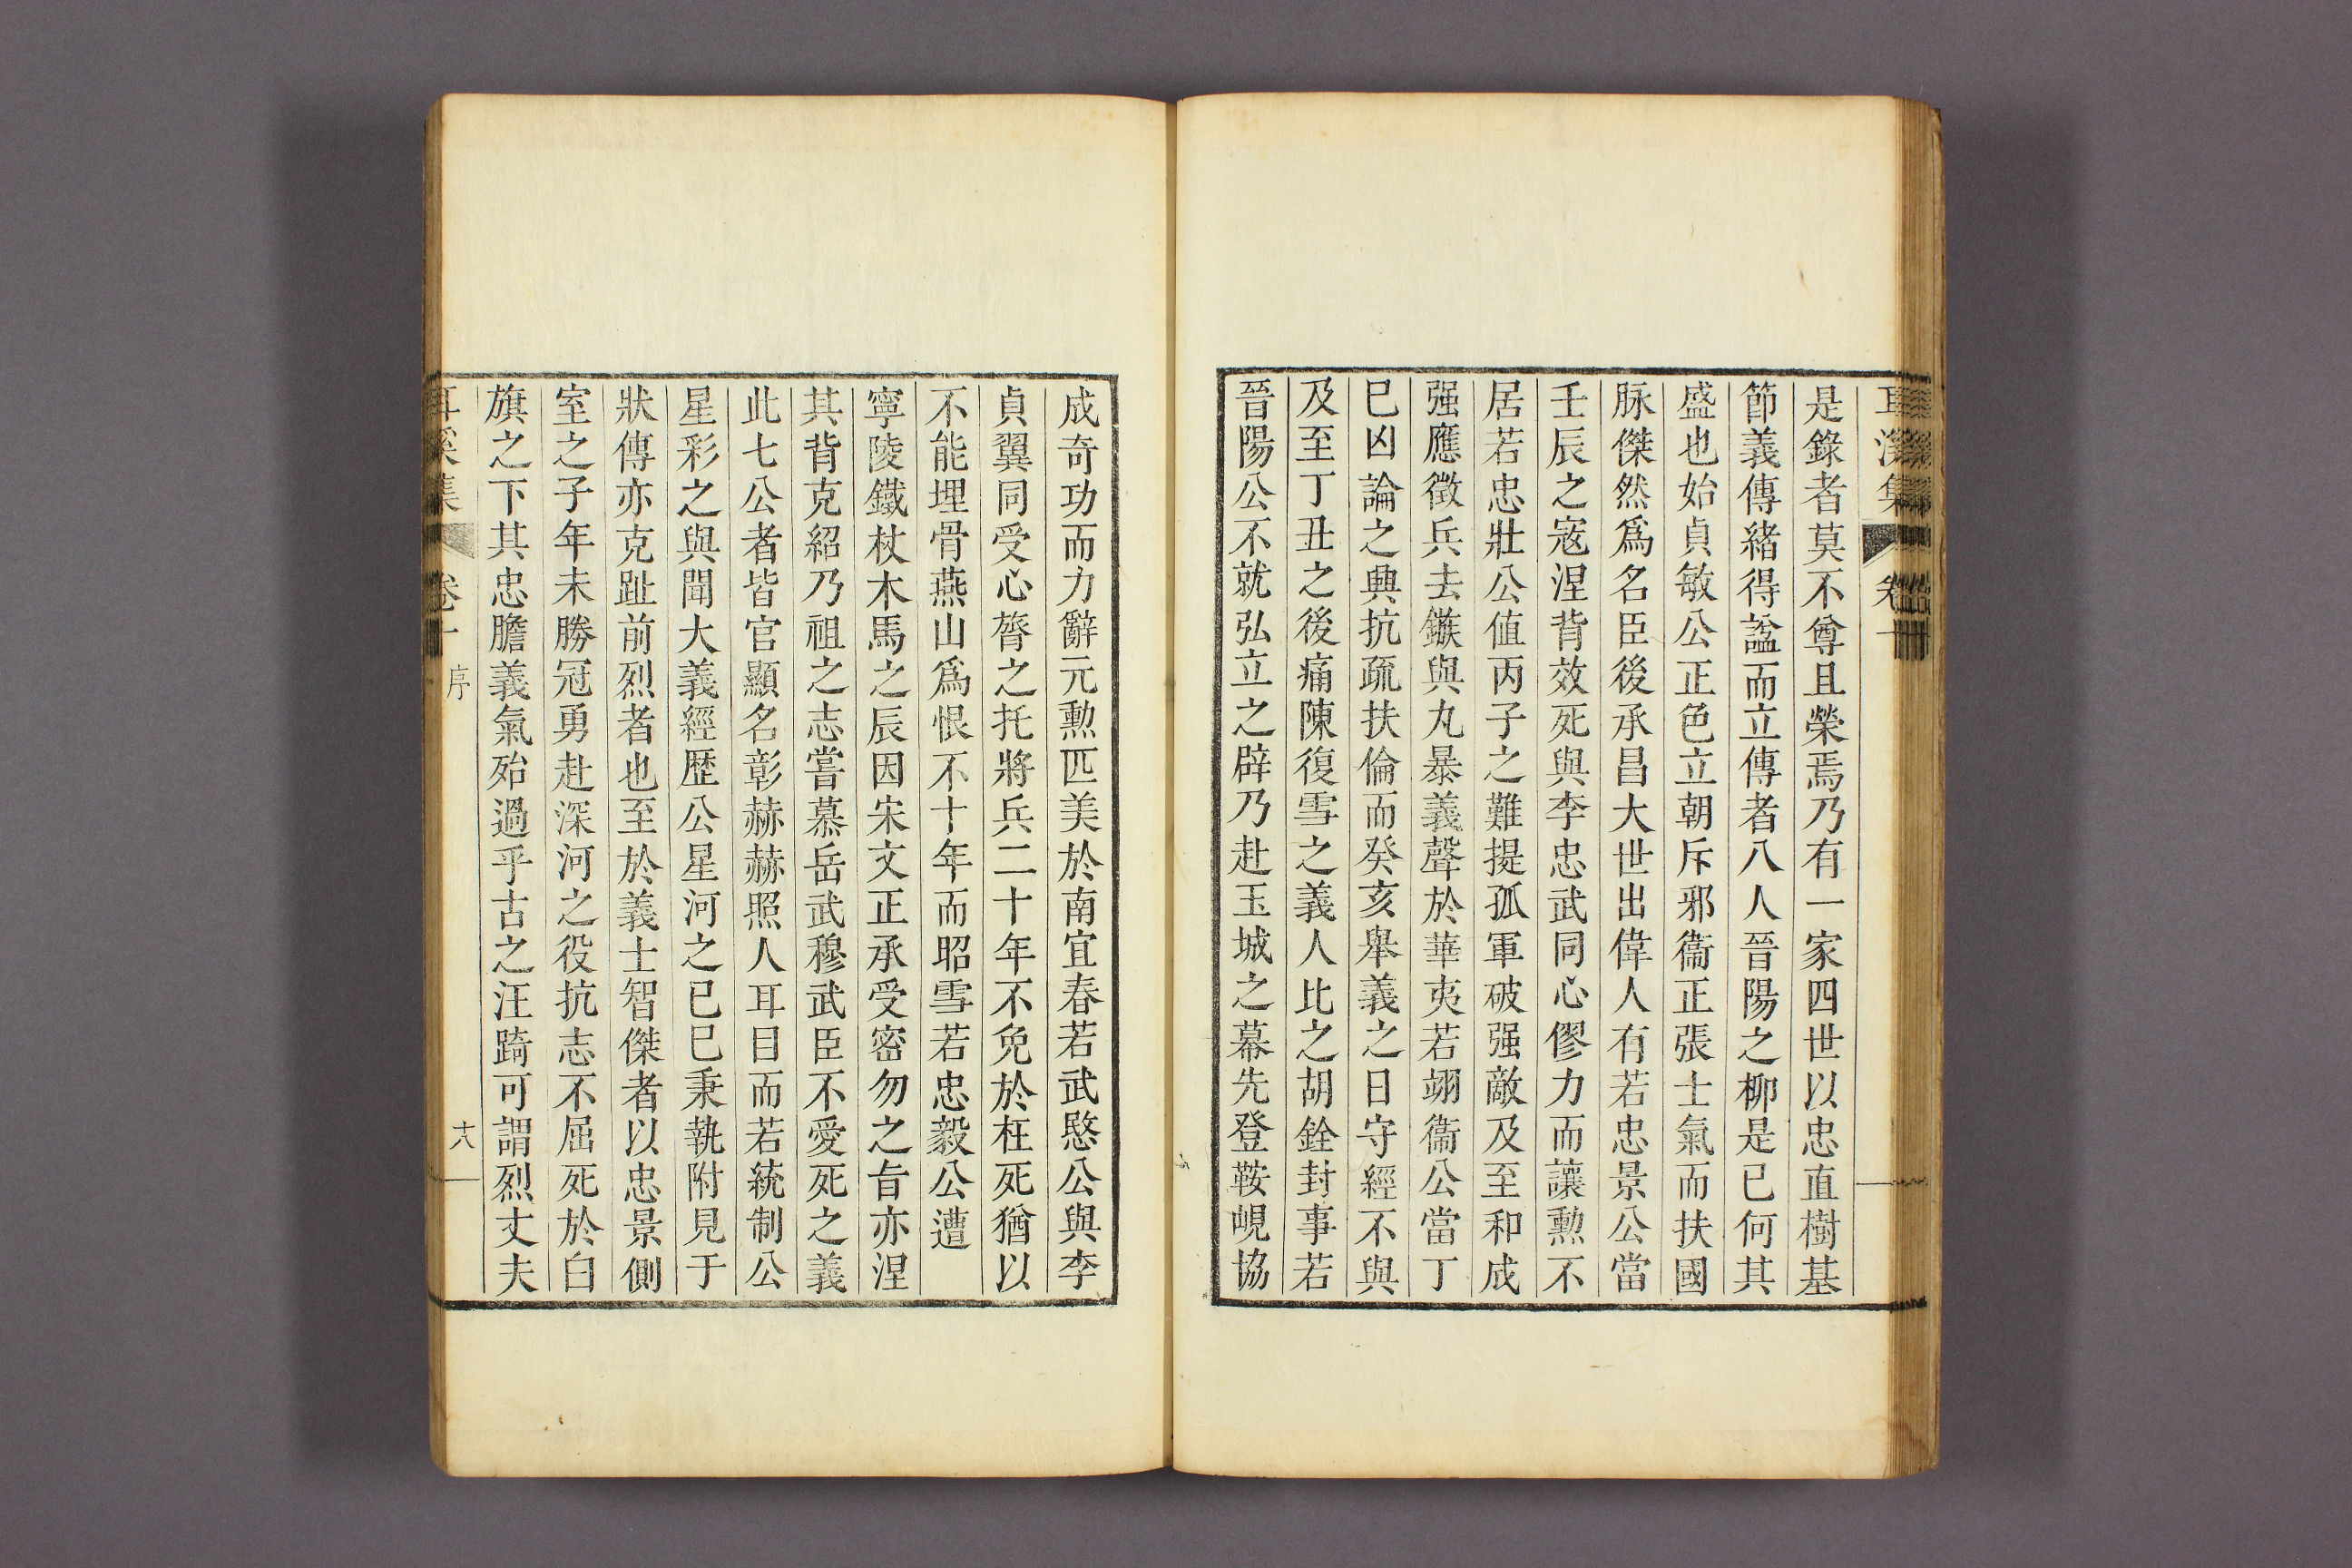 是錄者莫不尊且榮焉乃有一家四世以忠直樹基
節義傳緒得諡而立傳者八人晉陽之柳是已何其
盛也始貞敏公正色立朝斥邪衞正張士氣而扶國
脉傑然爲名臣後承昌大世出偉人有若忠景公當
壬辰之寇涅背效死與李忠武同心僇力而讓勲不
居若忠壯公值丙子之難提孤軍破强敵及至和成
强應徵兵去鏃與丸暴義聲於華夷若翊衞公當丁
巳凶論之興抗疏扶倫而癸亥舉義之日守經不與
及至丁丑之後痛陳復雪之義人比之胡銓封事若
晉陽公不就弘立之辟乃赴玉城之幕先登鞍峴協
成奇功而力辭元勲匹美於南宜春若武愍公與李
貞翼同受心膂之托將兵二十年不免於枉死猶以
不能埋骨燕山爲恨不十年而昭雪若忠毅公遭
寧陵鐵杖木馬之辰因宋文正承受密勿之旨亦涅
其背克紹乃祖之志嘗慕岳武穆武臣不愛死之義
此七公者皆官顯名彰赫赫照人耳目而若統制公
星彩之與聞大義經歷公星河之已巳秉執附見于
狀傳亦克趾前烈者也至於義士智傑者以忠景側
室之子年未勝冠勇赴深河之役抗志不屈死於白
旗之下其忠膽義氣殆過乎古之汪踦可謂烈丈夫
耳溪集
卷十
序
十八